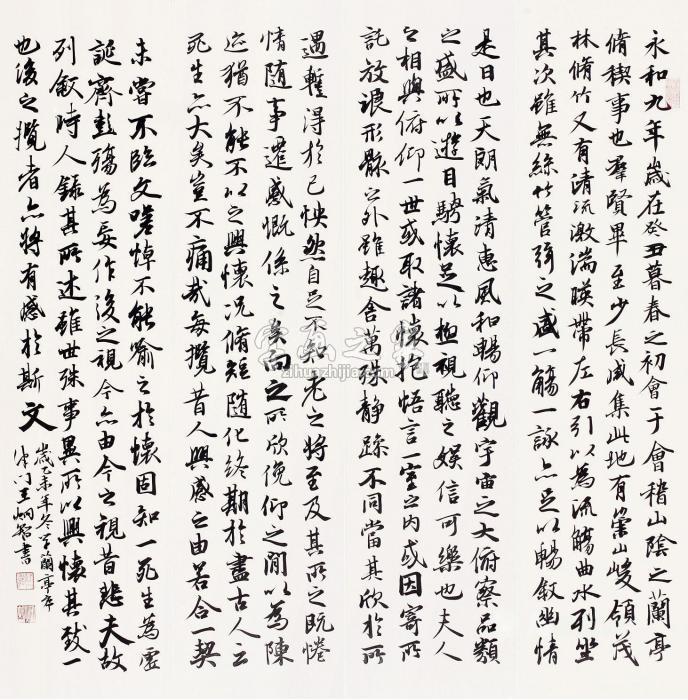 永和九年歲在癸丑暮春之初會于會稽山陰之蘭亭
脩稧事也羣賢畢至少長咸集此地有崇山峻領茂
林脩竹又有清流激湍暎帶左右引以為流觴曲水列坐
其次雖無絲竹管弦之盛一觴一詠亦足以暢敘幽情
是日也天朗氣清惠風和暢仰觀宇宙之大俯察品類
之盛所以遊目騁懷足以極視聽之娛信可樂也夫人
之相與俯仰一世或取諸懷抱悟言一室之內或因寄所
託放浪形骸之外雖趣舍萬殊靜躁不同當其欣於所
遇暫得於己怏然自足不知老之將至及其所之既惓
情隨事遷感慨係之矣向之所欣俛仰之閒以為陳
迹猶不能不以之興懷況脩短隨化終期於盡古人云
死生亦大矣豈不痛哉每攬昔人興感之由若合一契
未嘗不臨文嗟悼不能喻之於懷固知一死生為虛
誕齊彭殤為妄作後之視今亦由今之視昔悲夫故
列敘時人錄其所述雖世殊事異所以興懷其致一
也後之攬者亦將有感於斯文
歲乙未年冬 蘭亭序
津門王炯智書
字画之家
zihuazhijia.com